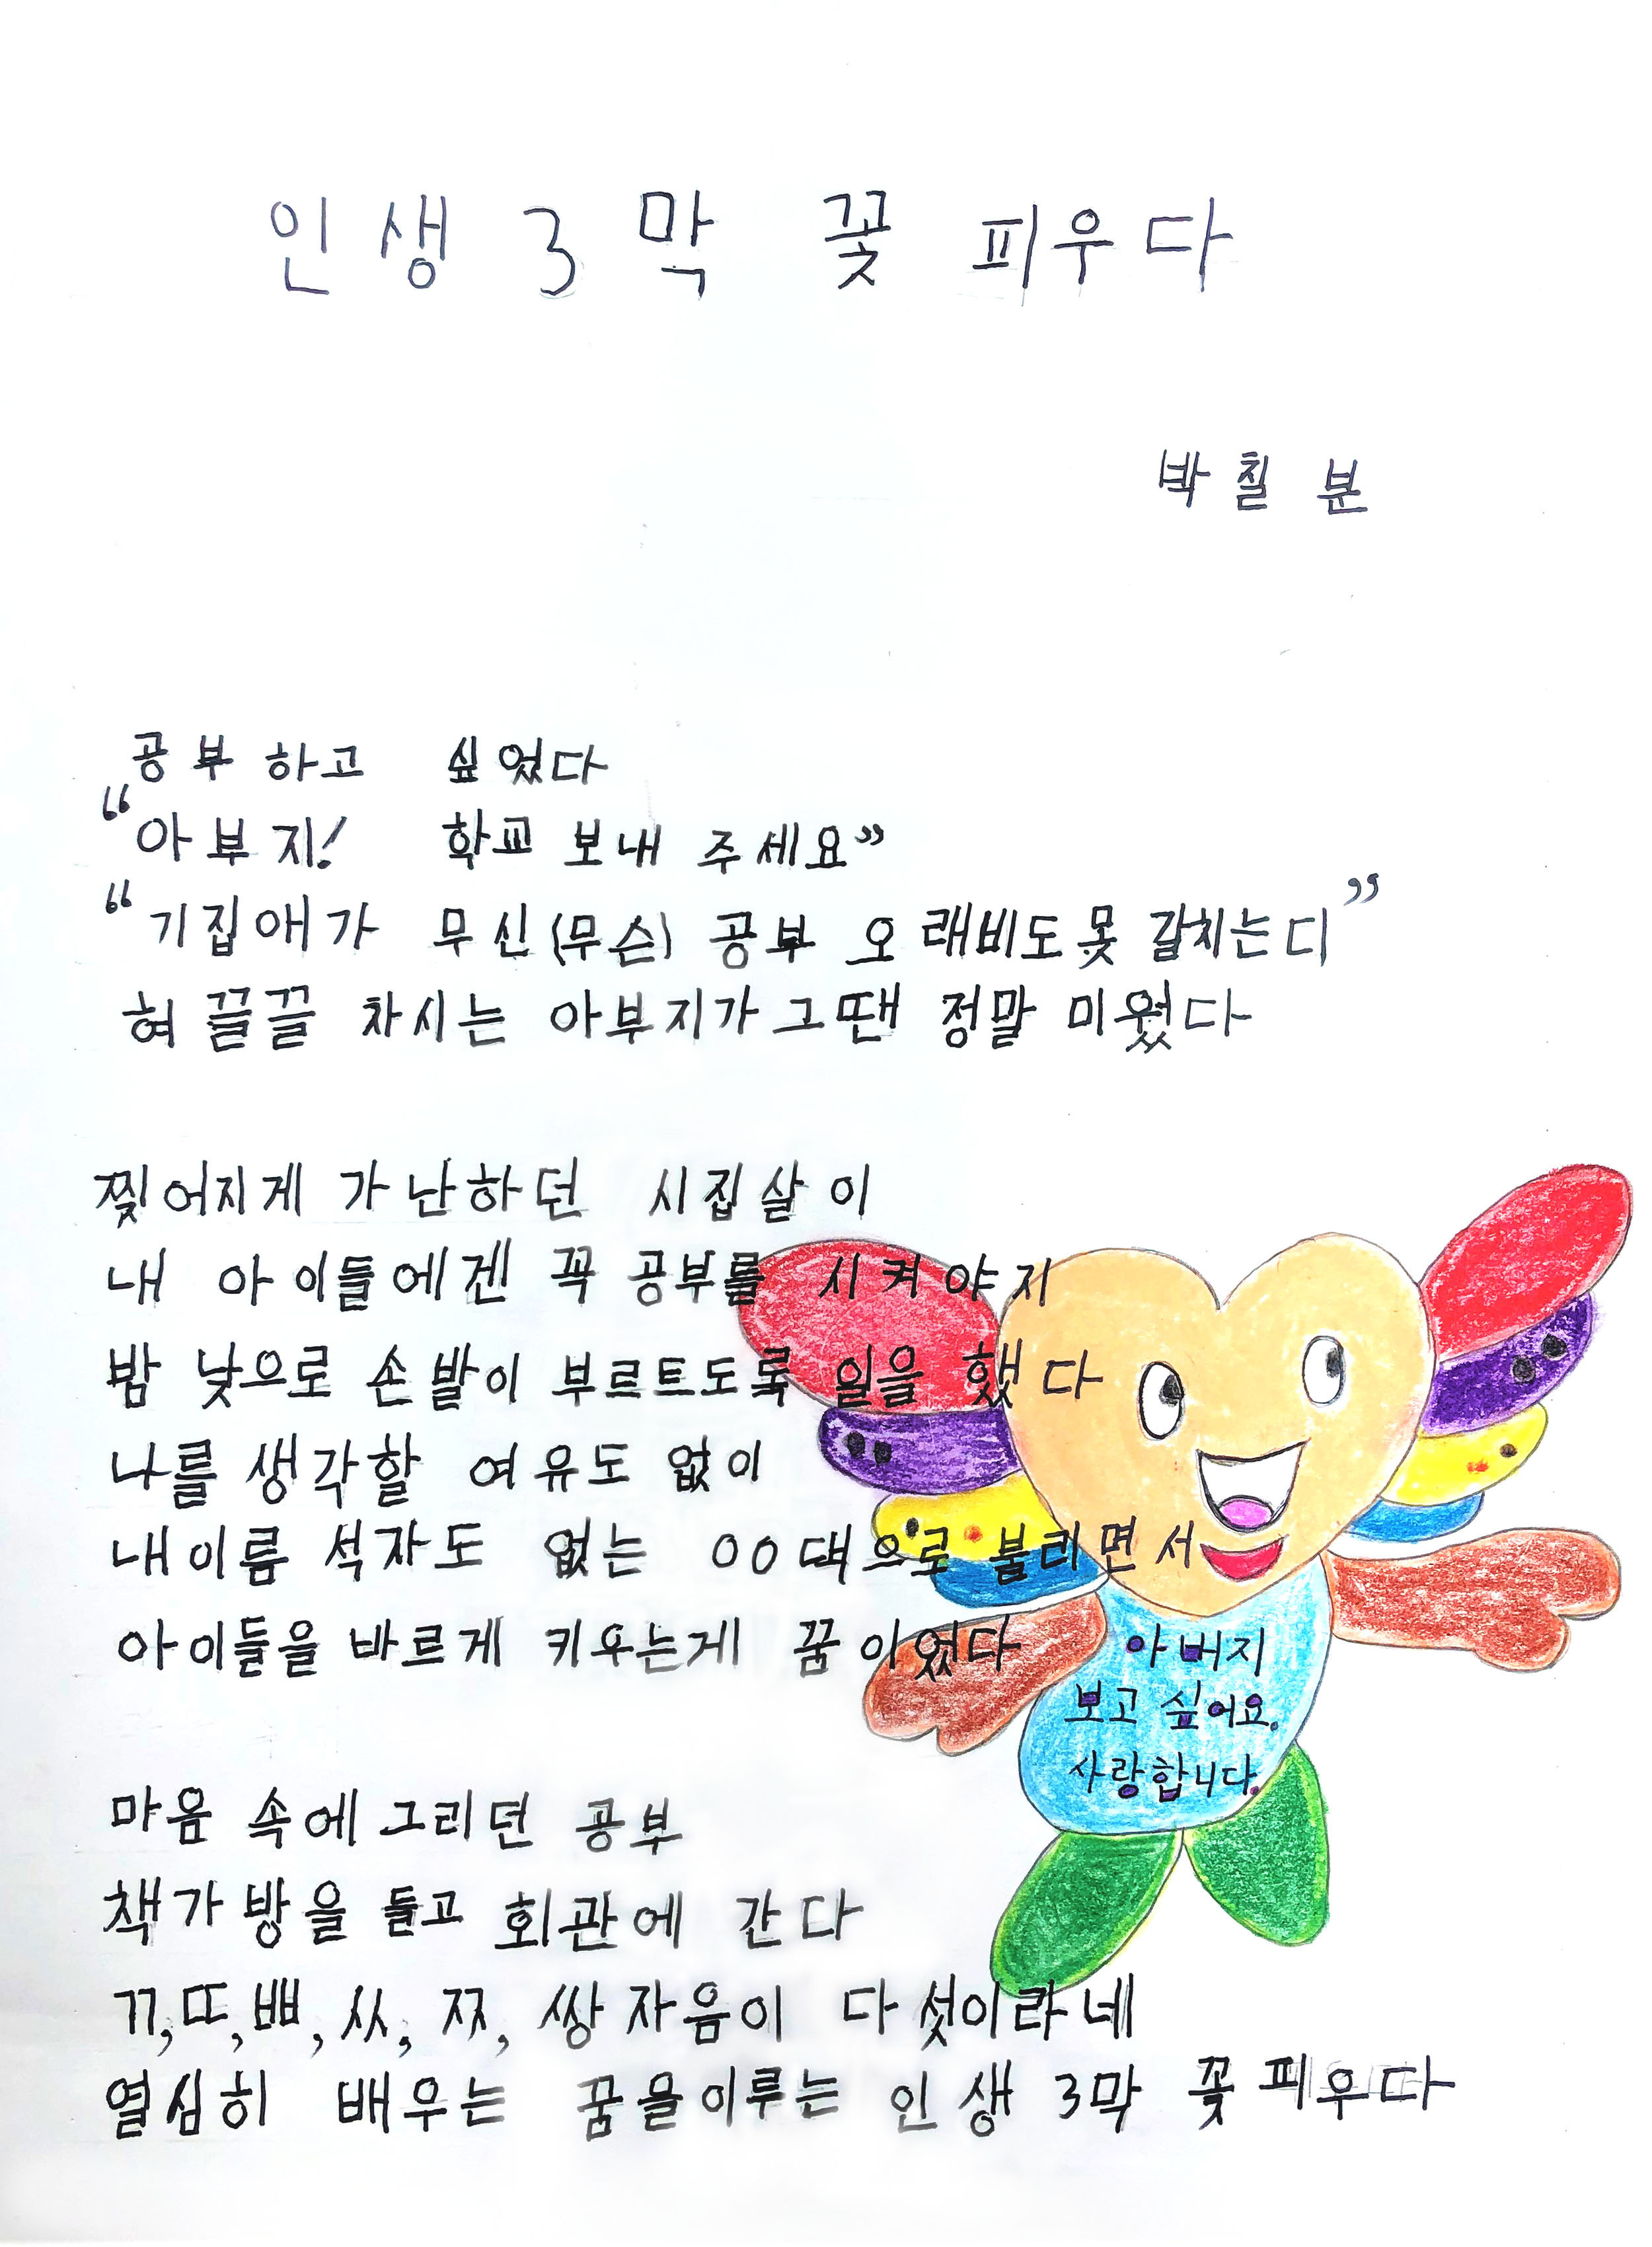 인생 3막 꽃 피우다
박칠분
공부하고 싶었다
“아부지! 학교 보내 주세요”
“기집애가 무신(무슨) 공부 오래비도 못 갈치는디”
혀 끌끌 차시는 아부지가 그땐 정말 미웠다
찢어지게 가난하던 시집살이
내 아이들에겐 꼭 공부를 시켜야지
밤 낮으로 손발이 부르트도록 일을 했다
나를 생각할 여유도 없이
내이름 석자도 없는 00댁으로 불리면서
아이들을 바르게 키우는게 꿈이었다
아버지
보고 싶어요.
사랑합니다.
마음 속에 그리던 공부
책가방을 들고 회관에 간다
ㄲ,ㄸ,ㅃ,ㅆ,ㅉ, 쌍자음이 다섯이라네
열심히 배우는 꿈을이루는 인생 3막 꽃피우다